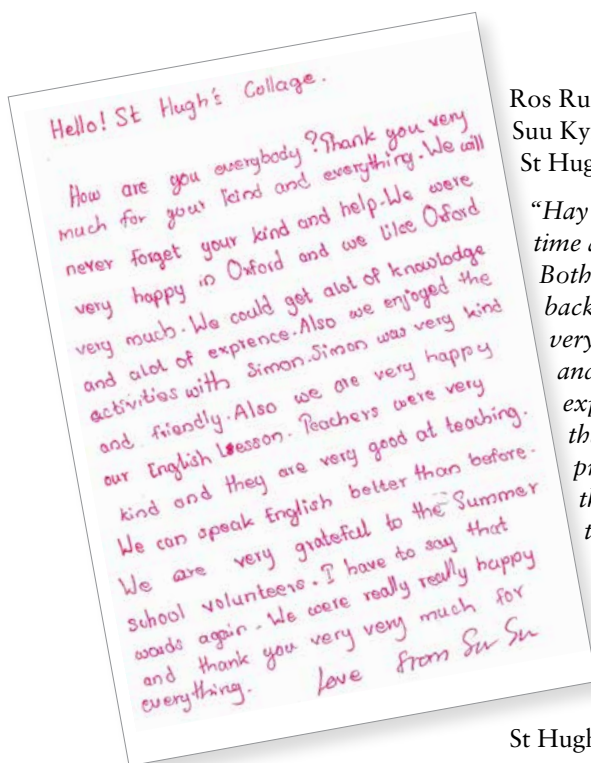 Hello! St Hugh's Collage.
How are you everybody? Thank you very
much for your kind and everything. We will
never forget your kind and help. We were
very happy in Oxford and we like Oxford
very much. We could get alot of knowlodge
and alot of exprence. Also we enjoyed the
activities with Simon. Simon was very kind
and friendly. Also we are very happy
our English Lesson. Teachers were very
kind and they are very good at teaching.
We can speak English better than before.
We are very gratefull to the Summer
school volunteers. I have to say that
words again. We were really really happy
and thank you very very much for
everything. Love from Su Su
Ros Ru
Suu Ky
St Hug
"Hay
time a
Both
back
very
and
exp
th
pr
th
t
St Hugh